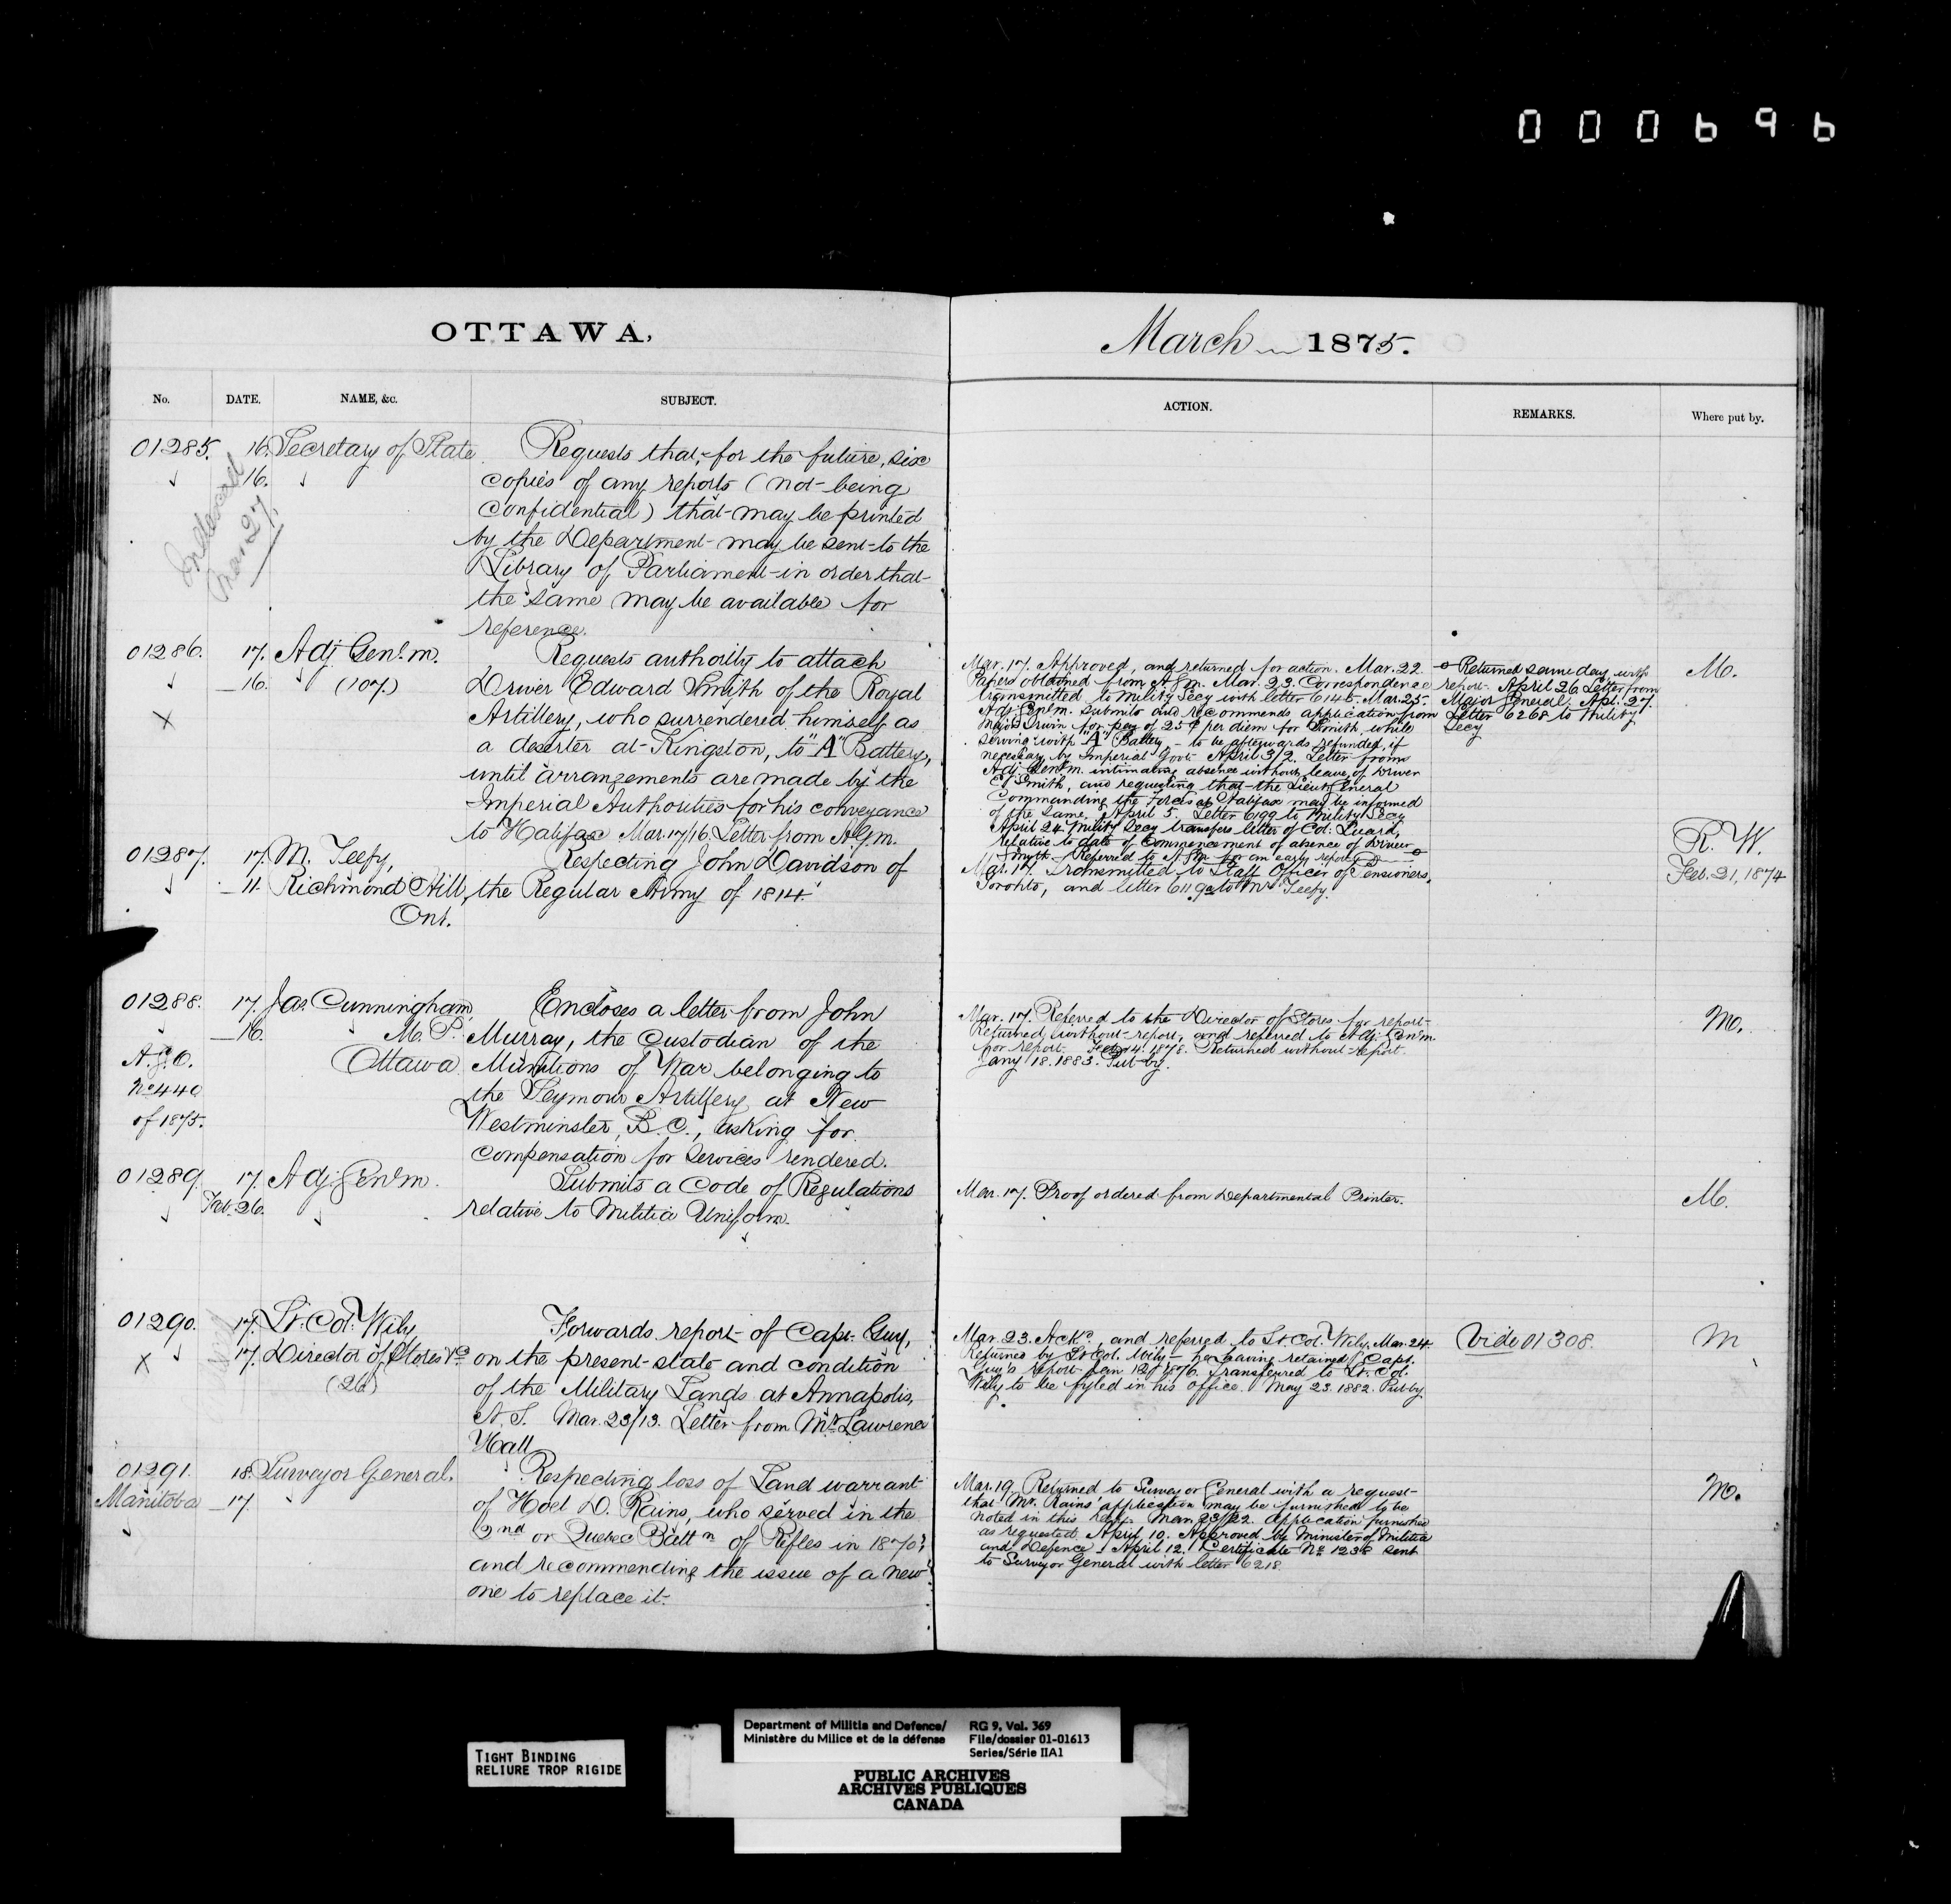 000696
OTTAWA,
No. DATE. NAME, &c. SUBJECT.
01285. 16. Secretary of State Requests that, for the future, six
16. copies of any reports (not being
Confidential) that may be printed
by the Department may be sent to the
Library of Parliament in order that
the same may be available for
reference.
Mar 27.
01286. 17. Adj. Genl. m. Requests authority to attach
16. (107.) Driver Edward Smith of the Royal
X Artillery, who surrendered himself as
a deserter at Kingston, to "A" Battery,
until arrangements are made by the
Imperial Authorities for his conveyance
to Halifax Mar. 17/16. Letter from A.G.m.
01287. 17. M. Teefy, Respecting John Davidson of
11. Richmond Hill, the Regular Army of 1814.
Ont.
01288. 17. Jas. Cunningham, Encloses a letter from John
16. M. P. Murray, the Custodian of the
A.G.O. Ottawa Munitions of War belonging to
No 440 the Seymour Artillery at New
of 1875. Westminster, B.C., asking for
compensation for services rendered.
01289. 17. Adj. Genl. m. Submits a Code of Regulations
Feb. 26. relative to Militia Uniform.
01290. 17. Lt. Col. Wily Forwards report of Capt. Guy,
X 17. Director of Stores &c on the present state and condition
(26) of the Military Lands at Annapolis,
N. S. Mar. 23/13. Letter from Mr. Lawrence
Hall
01291. 18. Surveyor General. Respecting loss of Land warrant
Manitoba 17. of Hoel D. Rains, who served in the
2nd or Quebec Battn of Rifles in 1870;
and recommending the issue of a new
one to replace it.
March 1875.
ACTION. REMARKS. Where put by.
Mar. 17. Approved, and returned for action. Mar. 22.
Papers obtained from A.G.m. Mar. 23. Correspondence
transmitted to Mility Secy with letter 6145. Mar. 25.
Adj. Genl. m. submits and recommends application from
Major Irwin for pay of 25 c per diem for Smith, while
serving with "A" Battery, - to be afterwards refunded, if
necessary by Imperial Govt. April 3/2. Letter from
Adj. Genl. m. intimating absence without leave of Driver
E. Smith, and requesting that the Lieut. General
Commanding the Forces at Halifax may be informed
of the same. April 5. Letter 6199 to Mility Secy
April 24. Mility Secy transfers letter of Col. Luard,
relative to date of Commencement of absence of Driver
Smith. Referred to A.G.m. for an early report
Returned same day with
report. April 26 Letter from
Major General, Apl. 27.
Letter 6268 to Mility
Secy
M.
Mar. 17. Transmitted to Staff Officer of Pensioners,
Toronto, and letter 6119 to Mr. Teefy.
R. W.
Feb. 21, 1874
Mar. 17. Referred to the Director of Stores for report
Returned without report, and referred to Adj. Genl. m.
for report. 1878. Returned without report.
Jany 18. 1883. Put by.
M.
Mar. 17. Proof ordered from Departmental Printer.
M.
Mar. 23. Ackd., and referred to Lt. Col. Wily, Mar. 24.
Returned by Lt. Col. Wily - he having retained Capt.
Guy's report Jan 12/1876. Transferred to Lt. Col.
Wily to be fyled in his Office. May 23. 1882. Put by.
Vide 01308.
M
Mar. 19. Returned to Surveyor General with a request
that Mr. Rains' application may be furnished to be
noted in this Dept. Mar. 23/22. Application furnished
as requested. April 10. Approved by Minister of Militia
and Defence. April 12. Certificate No. 1238 sent
to Surveyor General with letter 6218.
M.
TIGHT BINDING
RELIURE TROP RIGIDE
Department of Militia and Defence/
Ministère du Milice et de la défense
RG 9, Vol. 369
File/dossier 01-01613
Series/Série IIA1
PUBLIC ARCHIVES
ARCHIVES PUBLIQUES
CANADA